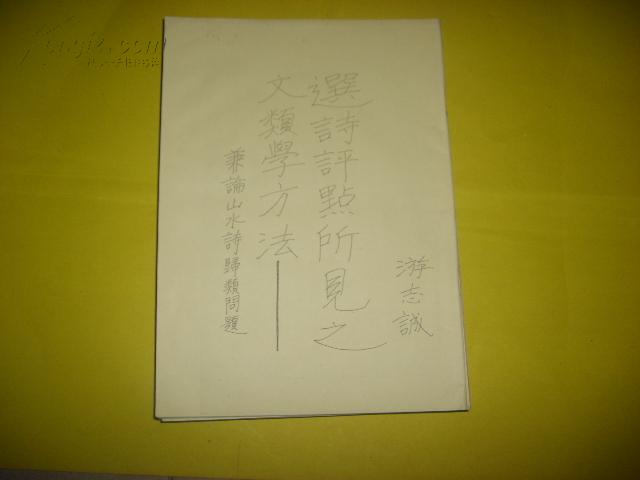 游志誠
選詩評點所見之
文類學方法——
兼論山水詩歸類問題